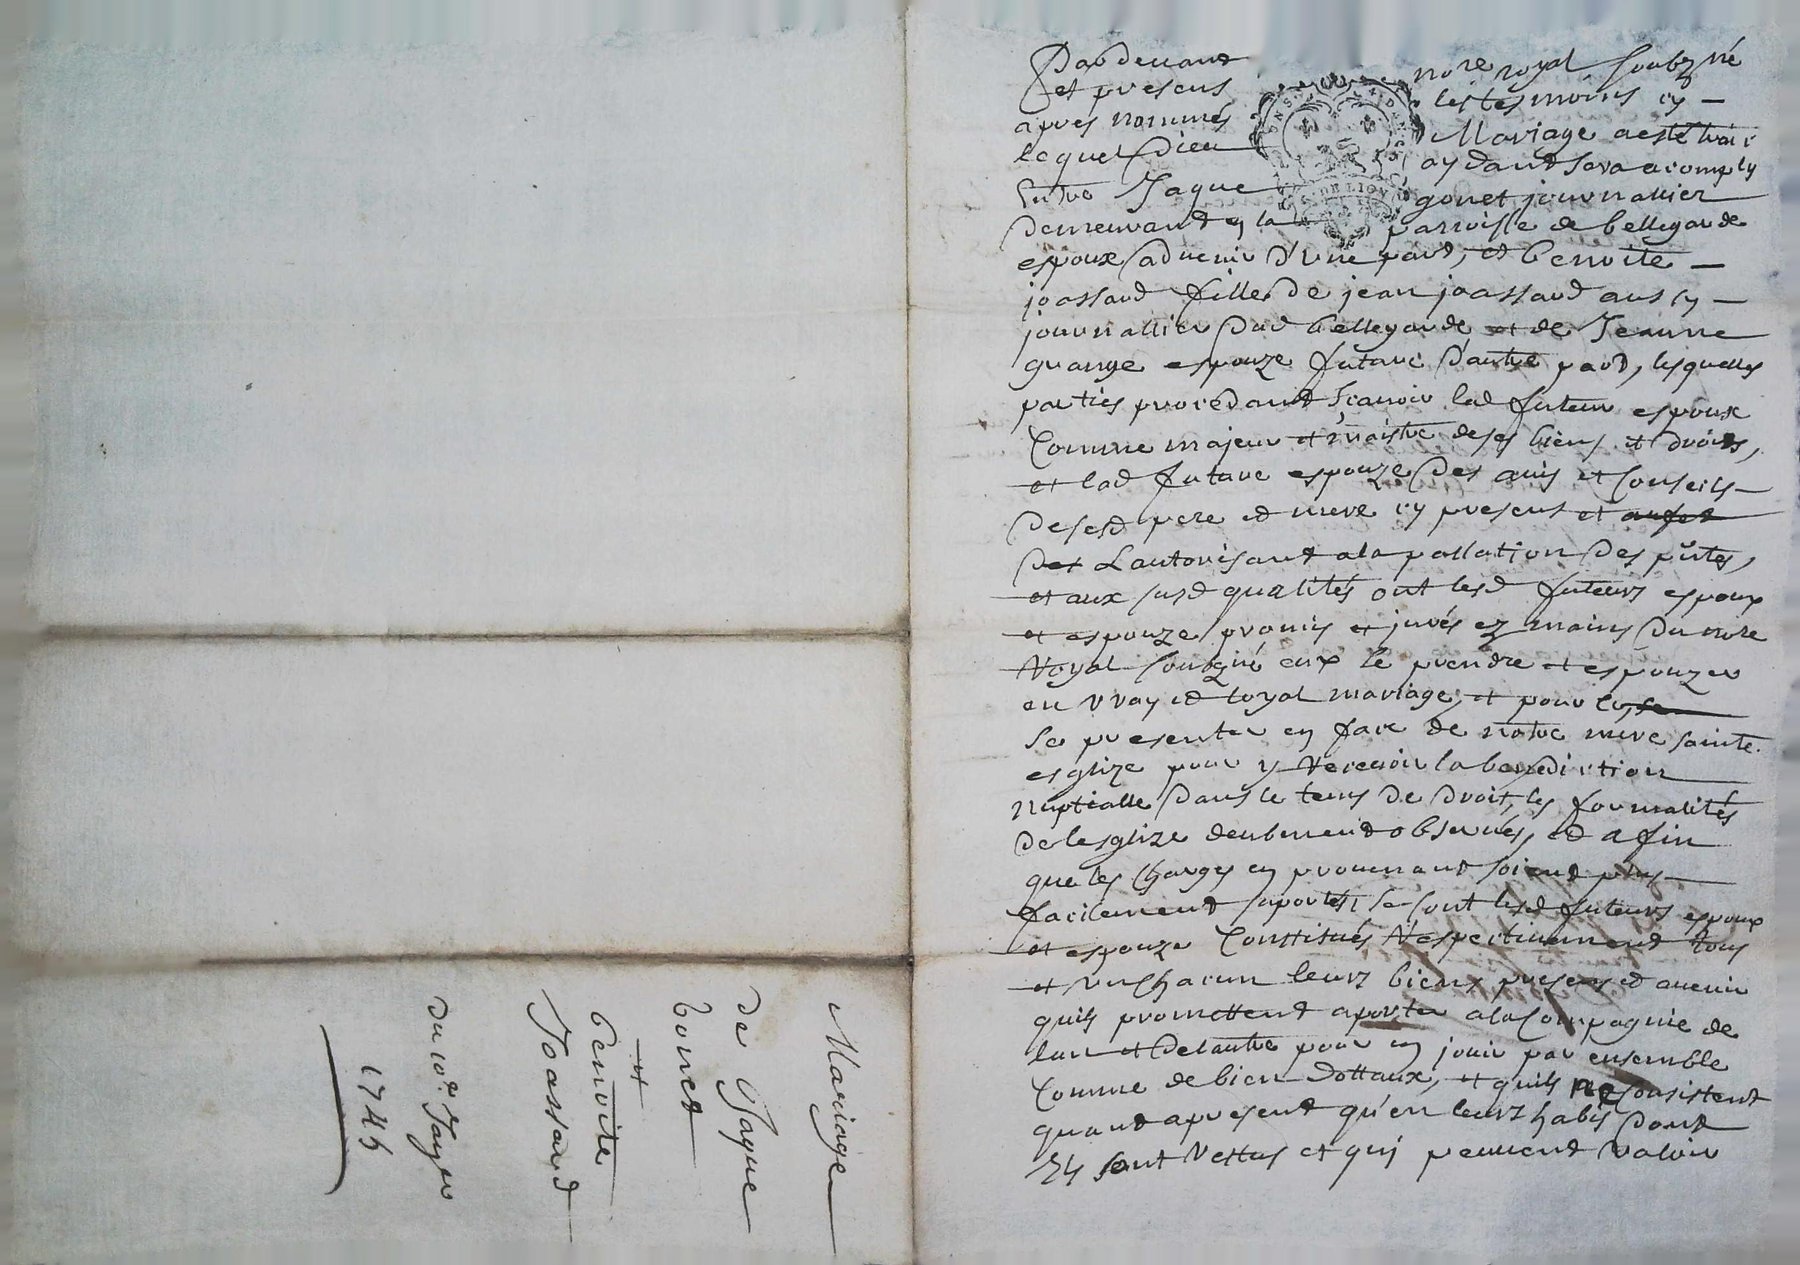 Mariage
de Jaque
Gonet
et
Benoite
Joassard
du 10e Janer
1745
Pardevant nore royal soubzné
et presens les tesmoins cy
apres nommés Mariage a esté trai
lequel Dieu aydant sera acomply
Entre Jaque gonet journallier
Demeurant en la parroisse de bellegarde
espoux advenir d'une part, et benoite
joassard fille de jean joassard aussy
journallier dud bellegarde et de Jeanne
grange espouze future d'autre part, lesquelles
parties procedant scavoir led futeur espoux
Comme majeur et maistre de ses biens et droits,
et lad future espouze des avis et Conseils
de sesd pere et mere cy presens et
L'autorisant a la passation des pntes,
et aux susd qualités ont lesd futeurs espoux
et espouze promis et jurés ez mains du nore
Royal souzgné eux se prendre et espouzer
en vray et loyal mariage, et pour ce
se presenter en face de notre mere sainte
esglize pour y recevoir la benediction
nuptialle dans le tems de droit, les formalités
de lesglize deubement observés, et afin
que les charges en provenant soient plus
facilement suportés, se sont lesd futeurs espoux
et espouze Constitués respectivement tous
et un chacun leurs biens presens et avenir
quils promettent aporter a la Compagnie de
lun et de lautre pour en jouir par ensemble
Comme de bien dottaux, et quils ne Consistent
quant apresent qu'en leurs habis dont
Ils sont vettus et qui peuvent valoir
GEN DE LION